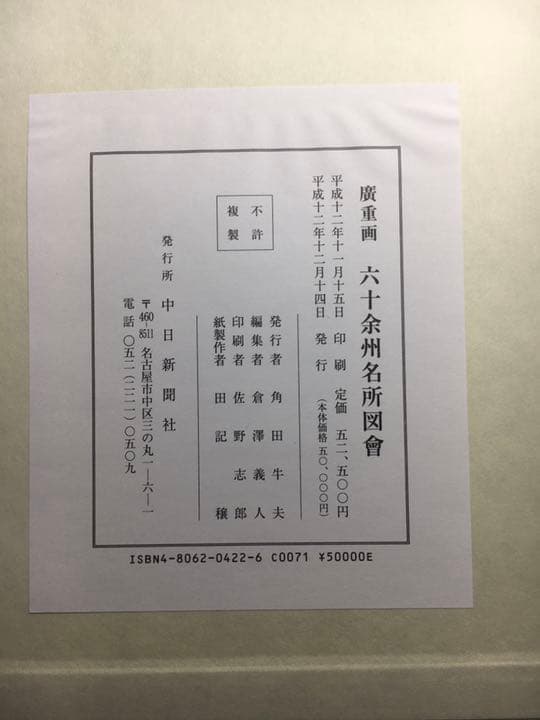 廣重画　六十余州名所図會
平成十二年十一月十五日　印刷　定価　五二、五〇〇円
平成十二年十二月十四日　発行　（本体価格 五〇、〇〇〇円）
発行者　角田牛夫
編集者　倉澤義人
印刷者　佐野志郎
紙製作者　田記穣
不許
複製
発行所　中日新聞社
〒460-8511　名古屋市中区三の丸一―六―一
電話　〇五二（二二一）〇五〇九
ISBN4-8062-0422-6 C0071 ¥50000E